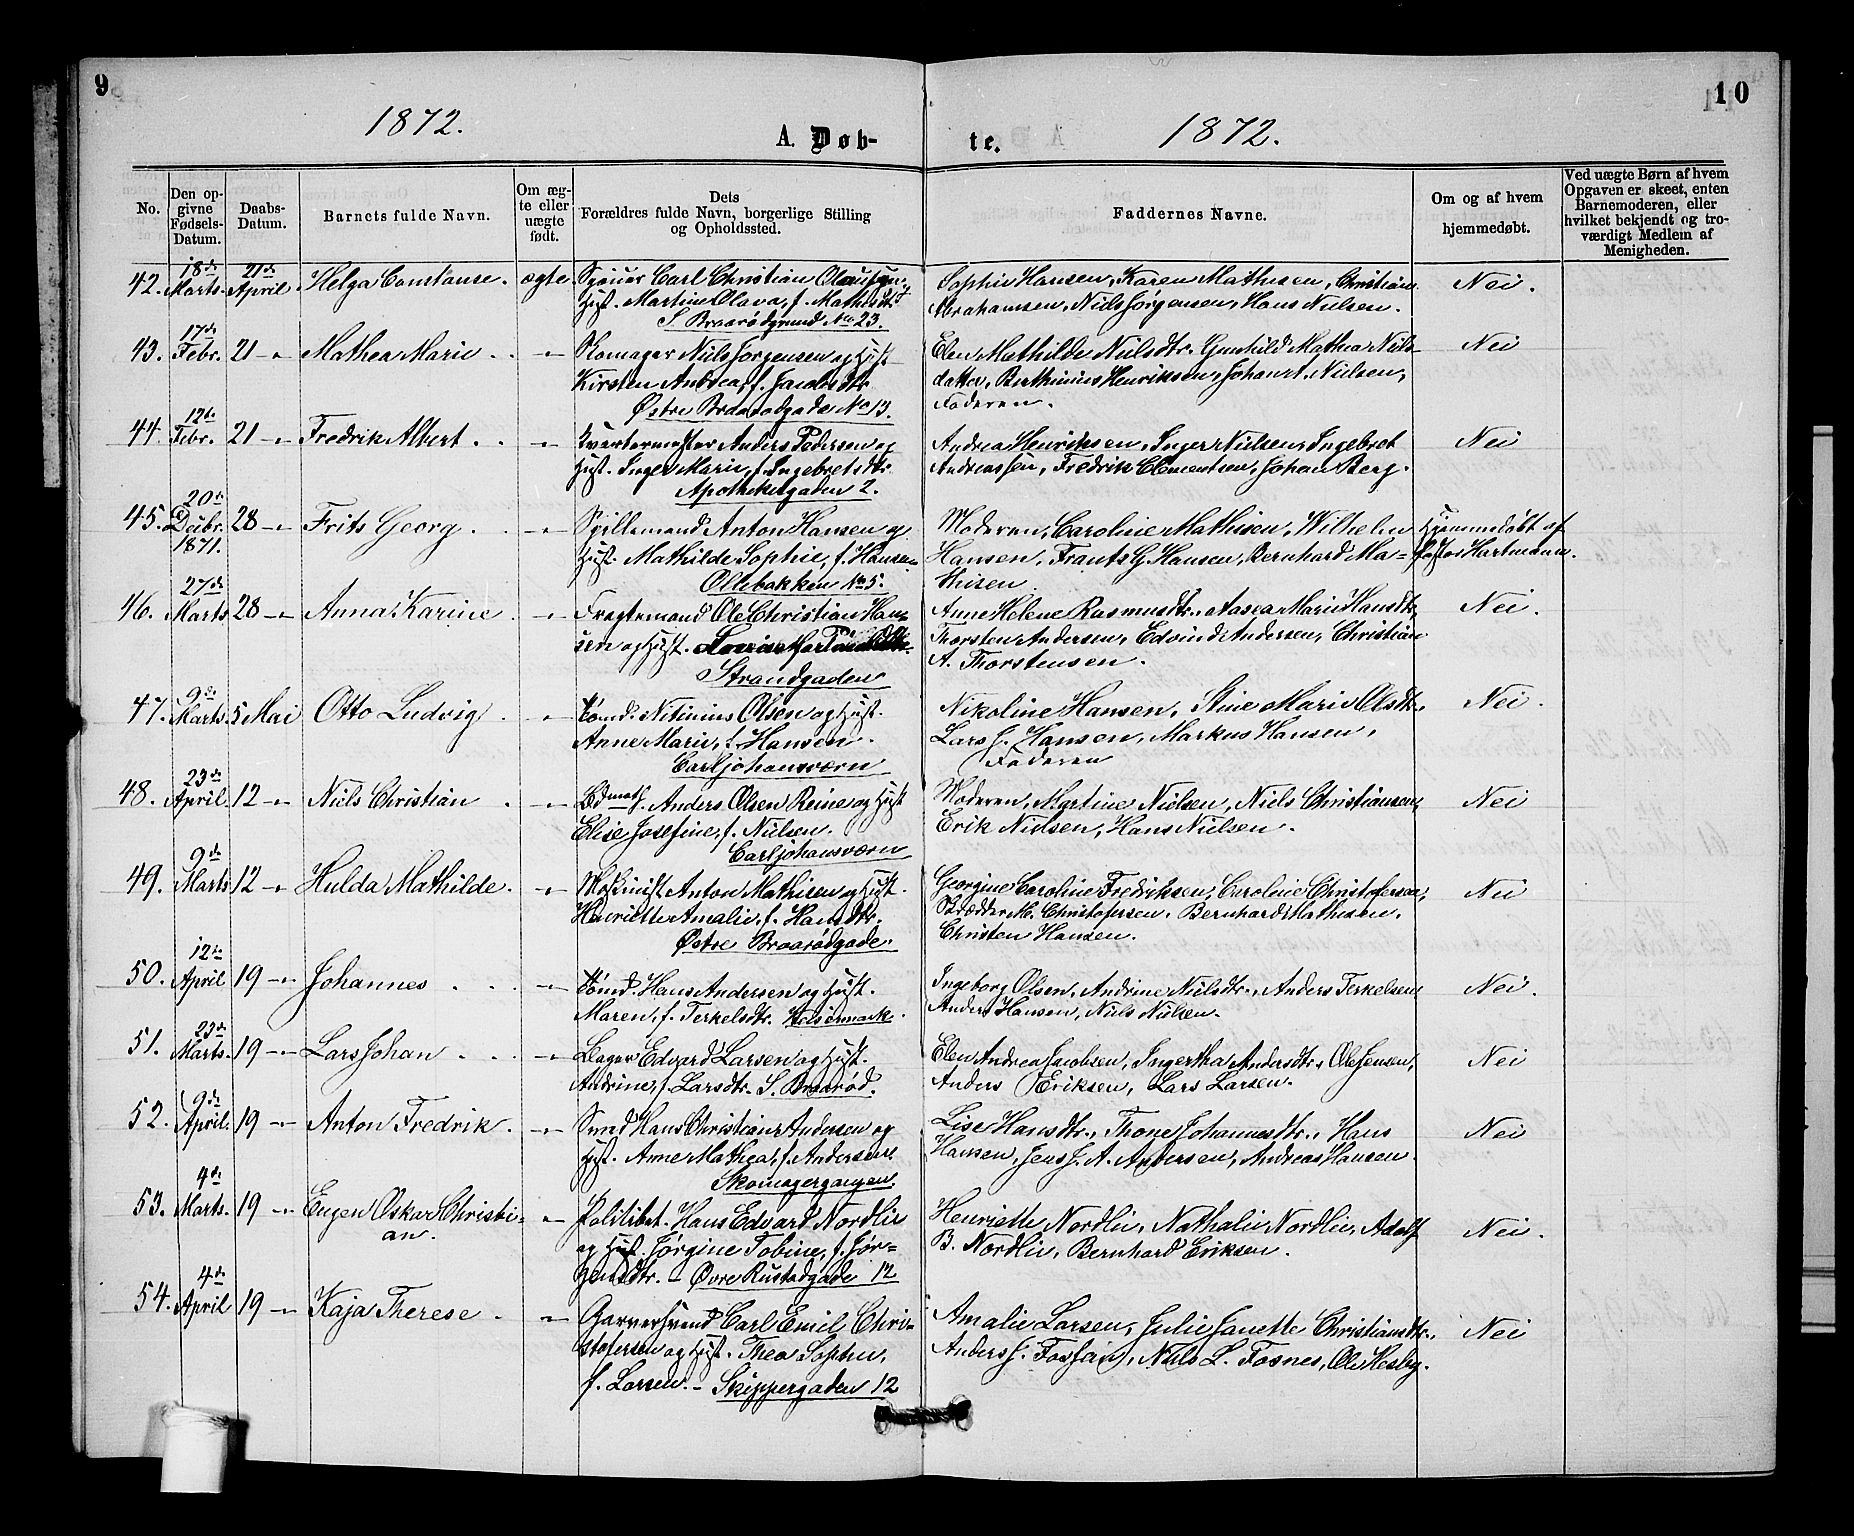 9
10
1872.
A. Døb-
te.
1872.
No.
Den op-
givne
Fødsels-
Datum.
Daabs-
Datum.
Barnets fulde Navn.
Om æg-
te eller
uægte
født.
Dets
Forældres fulde Navn, borgerlige Stilling
og Opholdssted.
Faddernes Navne.
Om og af hvem
hjemmedøbt.
Ved uægte Børn af hvem
Opgaven er skeet, enten
Barnemoderen, eller
hvilket bekjendt og tro-
værdigt Medlem af
Menigheden.
18de 21de
42. Marts. April Helga Constanse. ægte Carl Christian Sophie Hansen, Karen Mathisen, Christian Nei.
Hust. Martine Olava, f. Mathisdtr. Abrahamsen, Niels Jørgensen, Hans Nielsen.
S. Braarødgrund No 23.
17de
43. Febr. 21 -"- Mathea Marie . . -"- Skomager Niels Jørgensen og Hust Elen Mathilde Nielsdtr. Gunhild Mathea Niels- Nei
Kirsten Andrea, f. Jacobsdtr. datter, Berthinius Henriksen, Johan A. Nielsen,
Østre Braarødgade No 13. Faderen.
12te
44. Febr. 21 -"- Fredrik Albert . . -"- Kvartermester Anders Pedersen og Andrea Henriksen, Inger Nielsen, Ingebret Nei
Hust. Inger Marie, f. Ingebret.dtr. Andreassen, Fredrik Clementsen, Johan Berg.
Apothekergaden 2.
20de
45. Decbr. 28 -"- Frits Georg . . -"- Spillemand Anton Hansen og Moderen, Caroline Mathisen, Wilhelm Hjemmedøbt af
1871. Hust. Mathilde Sophie, f. Hansen Hansen, Frants G. Hansen, Bernhard Ma- Pastor Hartmann.
Ollebakken No 5. thisen
27de
46. Marts 28 -"- Anna Karine . -"- Fragtemand Ole Christian Han- Anne Helene Rasmusdtr., Aasea Marie Hansdtr, Nei.
sen og Hust. Thorsten Andersen, Edvind Andersen, Christian
Strandgaden A. Thorstensen.
9de
47. Marts. 5 Mai Otto Ludvig . -"- Tømd. Nitinius Olsen og Hust. Nikoline Hansen, Stine Marie Olsdtr., Nei.
Anne Marie, f. Hansen. Lars J. Hansen, Markus Hansen,
Carljohansværn Faderen
23de
48. April. 12 -"- Niels Christian . -"- Anders Olsen Reine og Hust Moderen, Martine Nielsen, Niels Christiansen, Nei
Elise Josefine, f. Nielsen. Erik Nielsen, Hans Nielsen.
Carljohansværn
9de
49. Marts 12 -"- Hulda Mathilde. -"- Maskinist Anton Mathisen og Hust. Georgine Caroline Fredriksen, Caroline Christofersen, Nei
Henriette Amalie, f. Hansdtr. Skrædder M. Christofersen. Bernhard Mathisen,
Østre Braarødgade. Christen Hansen.
12te
50. April 19 -"- Johannes . . -"- Tømd. Hans Andersen og Hust. Ingeborg Olsen, Andrine Nielsdtr., Anders Terkelsen, Nei.
Maren, f. Terkelsdtr. Anders Hansen, Niels Nielsen.
23de
51. Marts. 19 -"- Lars Johan . . . -"- Bager Edvard Larsen og Hust. Elen Andrea Jacobsen, Ingertha Andersdtr., Ole Jensen, Nei
Andrine, f. Larsdtr. S. Braarød. Anders Eriksen, Lars Larsen.
9de
52. April. 19 -"- Anton Fredrik . -"- Smed Hans Christian Andersen og Lise Hansdtr., Thone Johannesdtr., Hans Nei
Hust. Anne Mathea, f. Andersen. Hansen, Jens J. A. Andersen, Andreas Hansen.
Skomagergangen.
4de
53. Marts. 19 -"- Eugen Oskar Christi- -"- Politibet. Hans Edvard Nordlie Henriette Nordlie, Nathalie Nordlie, Adolf Nei.
an. og Hust. Jørgine Tobine, f. Jør- B. Nordlie, Bernhard Eriksen.
gensdtr. - Øvre Rustadgade 12
4de
54. April 19 -"- Kaja Therese . -"- Garversvend Carl Emil Chri- Amalie Larsen, Julie Janette Christiansdtr., Nei
stofersen og Hust. Thea Sophie, Anders J. Fossan, Niels L. Fosnes, Ole Hesby.
f. Larsen. - Skippergaden 12